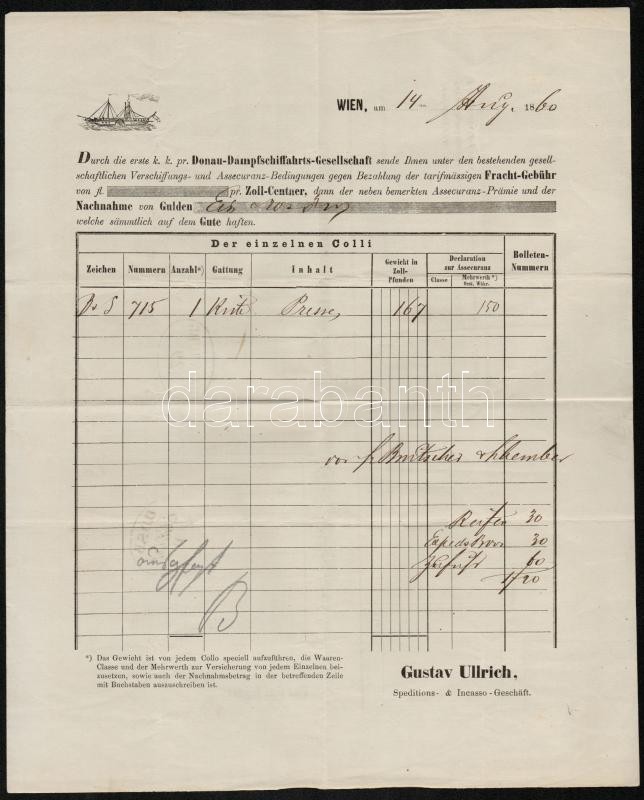 WIEN, am 14 Aug. 1860
Durch die erste k. k. pr. Donau-Dampfschiffahrts-Gesellschaft sende Ihnen unter den bestehenden gesell-
schaftlichen Verschiffungs- und Assecuranz-Bedingungen gegen Bezahlung der tarifmässigen Fracht-Gebühr
von fl. pr. Zoll-Centner, dann der neben bemerkten Assecuranz-Prämie und der
Nachnahme von Gulden
welche sämmtlich auf dem Gute haften.
Der einzelnen Colli
Zeichen Nummern Anzahl*) Gattung Inhalt Gewicht in Zoll-Pfunden Declaration zur Assecuranz Classe Mehrwerth*) Oest. Währ. Bolleten-Nummern
715 1 Kiste Presse, 167 150
darabanth
30
30
60
1/20
*) Das Gewicht ist von jedem Collo speciell aufzuführen, die Waaren-
Classe und der Mehrwerth zur Versicherung von jedem Einzelnen bei-
zusetzen, sowie auch der Nachnahmsbetrag in der betreffenden Zeile
mit Buchstaben auszuschreiben ist.
Gustav Ullrich,
Speditions- & Incasso-Geschäft.